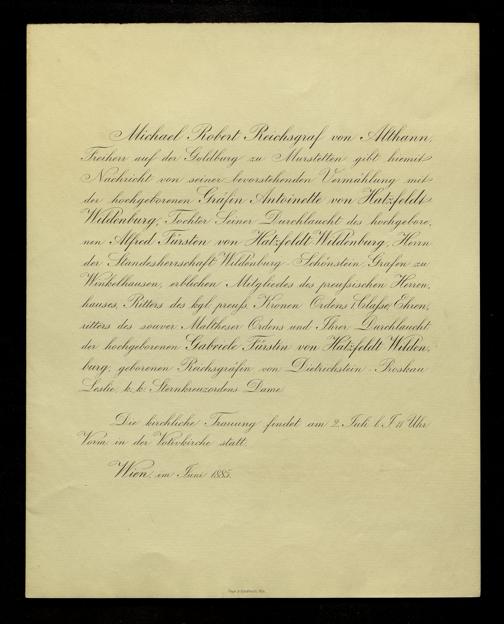 Michael Robert Reichsgraf von Althann,
Freiherr auf der Goldburg zu Murstetten gibt hiemit
Nachricht von seiner bevorstehenden Vermählung mit
der hochgeborenen Gräfin Antoinette von Hatzfeldt-
Wildenburg, Tochter Seiner Durchlaucht des hochgebore,
nen Alfred Fürsten von Hatzfeldt Wildenburg, Herrn
der Standesherrschaft Wildenburg-Schönstein, Grafen zu
Winkelhausen, erblichen Mitgliedes des preußischen Herren,
hauses, Ritters des kgl. preuß. Kronen Ordens Classe, Ehren,
ritters des souver. Maltheser Ordens und Ihrer Durchlaucht
der hochgeborenen Gabriele Fürstin von Hatzfeldt Wilden,
burg, geborenen Reichsgräfin von Dietrichstein-Proskau
Leslie, k. k. Sternkreuzordens Dame.
Die kirchliche Trauung findet am 2. Juli l. J. 11 Uhr
Vorm. in der Votivkirche statt.
Wien, im Juni 1885.